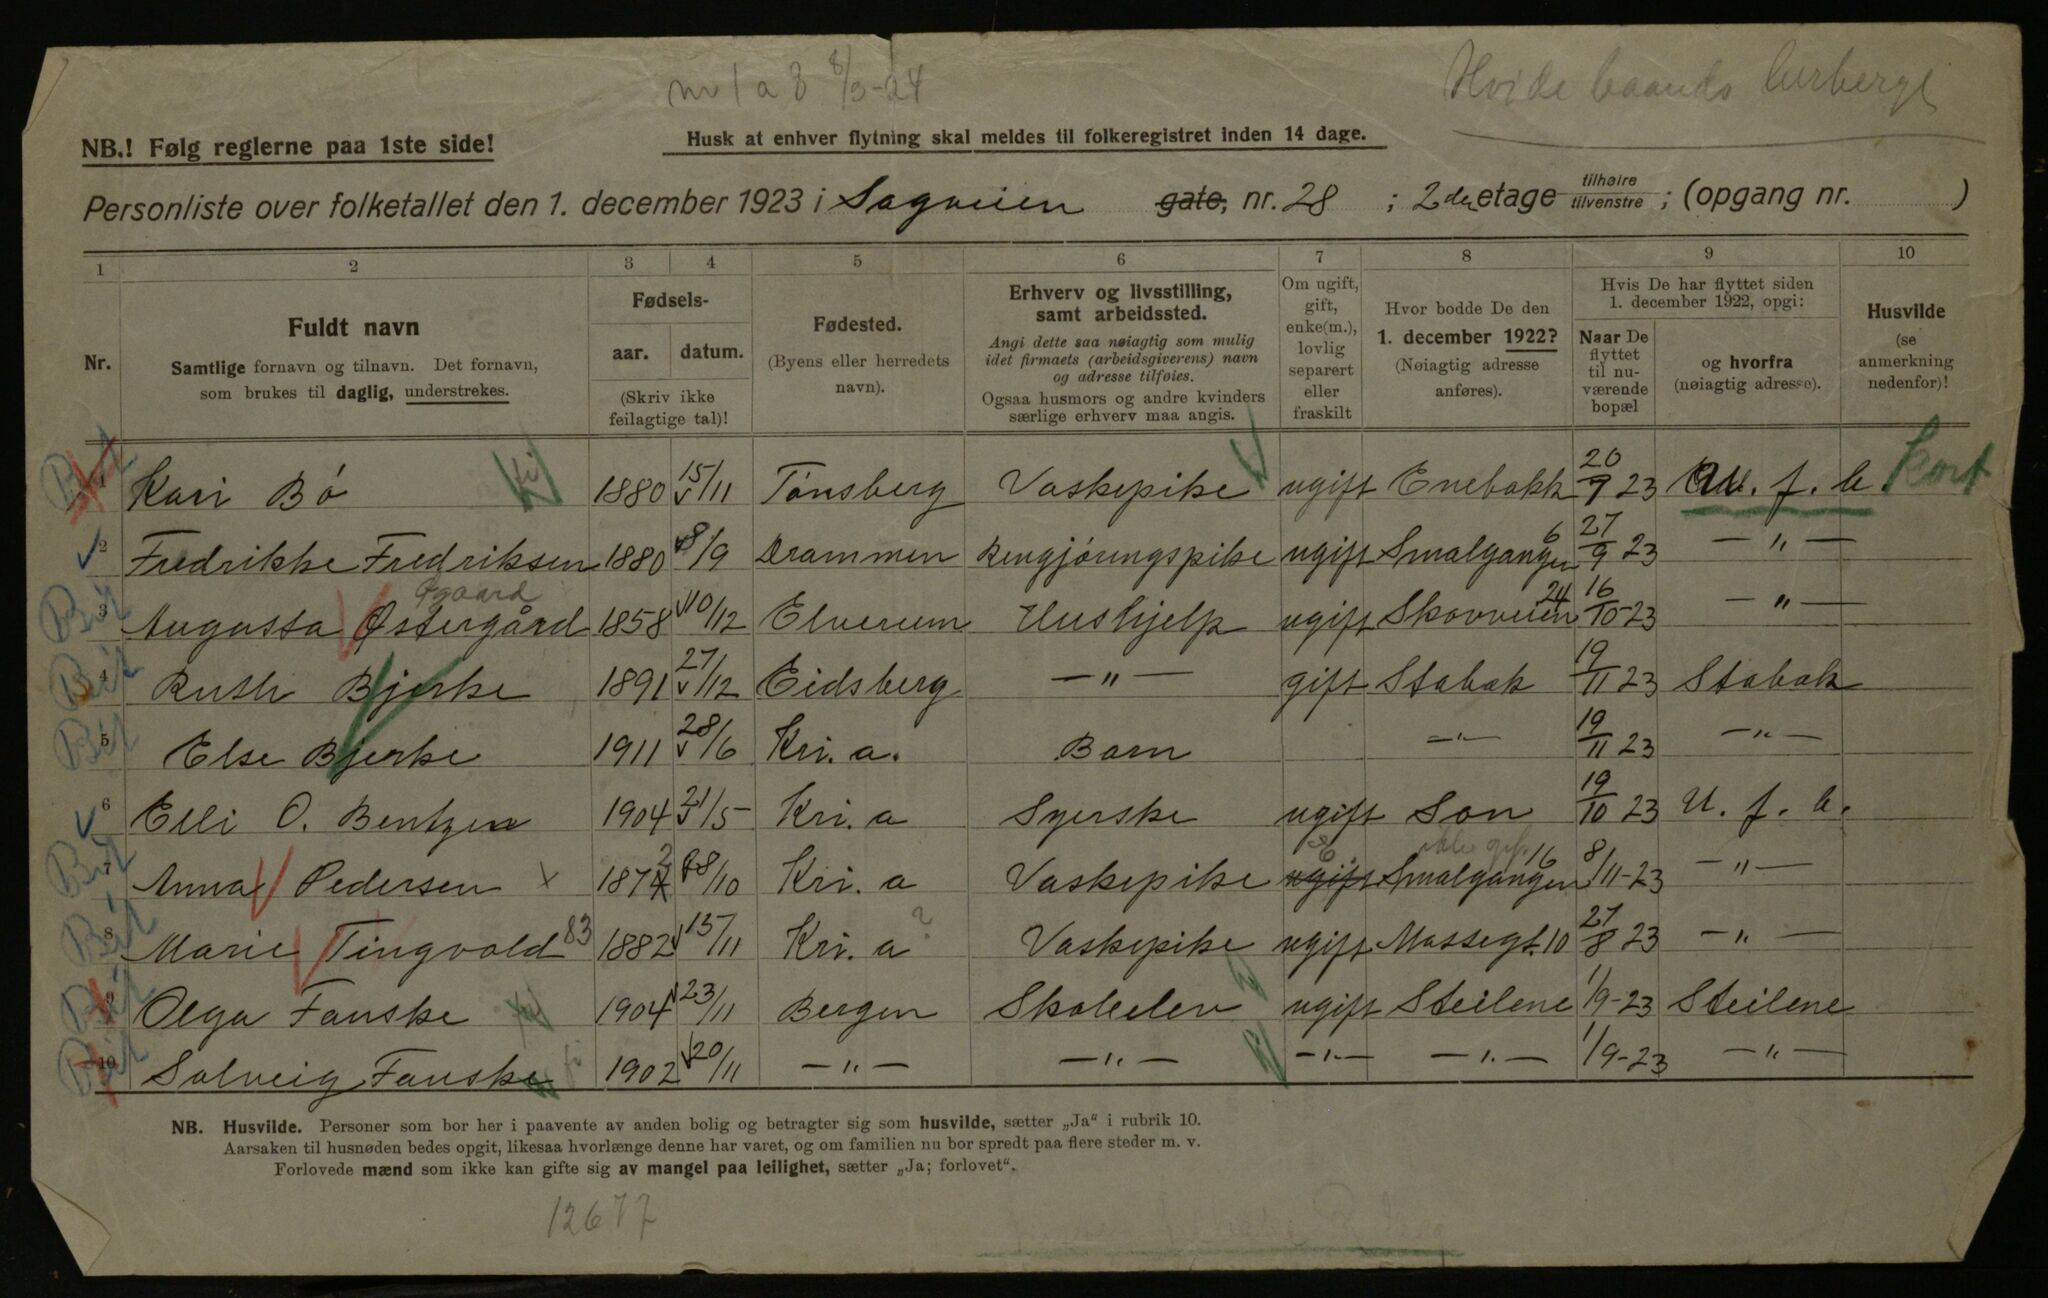 Hvide baands herberge
8/3-24
NB.! Følg reglerne paa 1ste side!
Husk at enhver flytning skal meldes til folkeregistret inden 14 dage.
Personliste over folketallet den 1. december 1923 i Sagveien gate, nr. 28 ; 2den etage tilhøire tilvenstre ; (opgang nr. )
1 2 3 4 5 6 7 8 9 10
Nr.
Fuldt navn
Samtlige fornavn og tilnavn. Det fornavn,
som brukes til daglig, understrekes.
Fødsels-
aar. datum.
(Skriv ikke
feilagtige tal)!
Fødested.
(Byens eller herredets
navn).
Erhverv og livsstilling,
samt arbeidssted.
Angi dette saa nøiagtig som mulig
idet firmaets (arbeidsgiverens) navn
og adresse tilføies.
Ogsaa husmors og andre kvinders
særlige erhverv maa angis.
Om ugift,
gift,
enke(m.),
lovlig
separert
eller
fraskilt
Hvor bodde De den
1. december 1922?
(Nøiagtig adresse
anføres).
Hvis De har flyttet siden
1. december 1922, opgi:
Naar De
flyttet
til nu-
værende
bopæl
og hvorfra
(nøiagtig adresse).
Husvilde
(se
anmerkning
nedenfor)!
1 Kari Bó 1880 15/11 Tónsberg Vaskepike ugift Enebakk 20/9 23 U. f. b. Kort
2 Fredrikke Fredriksen 1880 8/9 Drammen Rengjóringspike ugift Smalgangen 6 27/9 23 — " —
Øgaard
3 Augusta Østergård 1858 10/12 Elverum Hushjelp ugift Skovveien 24 16/10-23 — " —
4 Ruth Bjerke 1891 27/12 Eidsberg — " — gift Stabak 19/11 23 Stabak
5 Else Bjerke 1911 28/6 Kri. a. Barn — " — 19/11 23 — " —
6 Elli O. Bentzen 1904 21/5 Kri. a Syerske ugift Son 19/10 23 U. f. b.
7 Anna Pedersen x 1872 28/10 Kri. a Vaskepike ugift e Smalgangen 16 8/11-23 — " —
8 Marie Tingvold 83 1882 15/11 Kri. a ? Vaskepike ugift Massegt. 10 27/8 23 — " —
9 Olga Fauske 1904 23/11 Bergen Skoleelev ugift Steilene 1/9-23 Steilene
10 Solveig Fauske 1902 20/11 — " — — " — — " — — " — 1/9-23 — " —
NB. Husvilde. Personer som bor her i paavente av anden bolig og betragter sig som husvilde, sætter „Ja“ i rubrik 10.
Aarsaken til husnøden bedes opgit, likesaa hvorlænge denne har varet, og om familien nu bor spredt paa flere steder m. v.
Forlovede mænd som ikke kan gifte sig av mangel paa leilighet, sætter „Ja; forlovet“.
12677